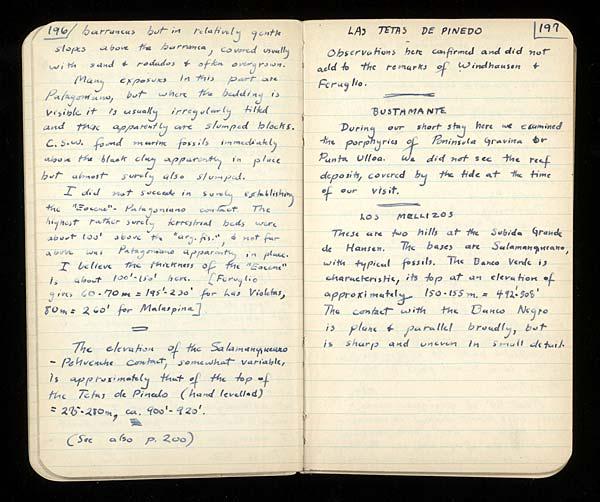 196/ barrancas but in relatively gentle
slopes above the barranca, covered usually
with sand & rodados & often overgrown.
Many exposures in this part are
Patagoniano, but where the bedding is
visible it is usually irregularly tilted
and these apparently are slumped blocks.
C.S.W. found marine fossils immediately
above the black clay apparently in place
but almost surely also slumped.
I did not succeed in surely establishing
the "Eocene"- Patagoniano contact. The
highest rather surely terrestrial beds were
about 100' above the "arg. fis.", & not far
above was Patagoniano apparently in place.
I believe the thickness of the "Eocene"
is about 100'-150' here. [Feruglio
gives 60-70m = 195'-230' for Las Violetas,
80m = 260' for Malaspina]
The elevation of the Salamanqueano
- Pehuenche contact, somewhat variable,
is approximately that of the top of
the Tetas de Pinedo (hand levelled)
= 275-280m, ca. 900'-920'.
(See also p. 200)
LAS TETAS DE PINEDO 197
Observations here confirmed and did not
add to the remarks of Windhausen &
Feruglio.
BUSTAMANTE
During our short stay here we examined
the porphyries of Peninsula Gravina or
Punta Ulloa. We did not see the reef
deposits, covered by the tide at the time
of our visit.
LOS MELLIZOS
These are two hills at the Subida Grande
de Hansen. The bases are Salamanqueano,
with typical fossils. The Banco Verde is
characteristic, its top at an elevation of
approximately 150-155 m. = 492-508'
The contact with the Banco Negro
is plane & parallel broadly, but
is sharp and uneven in small detail.